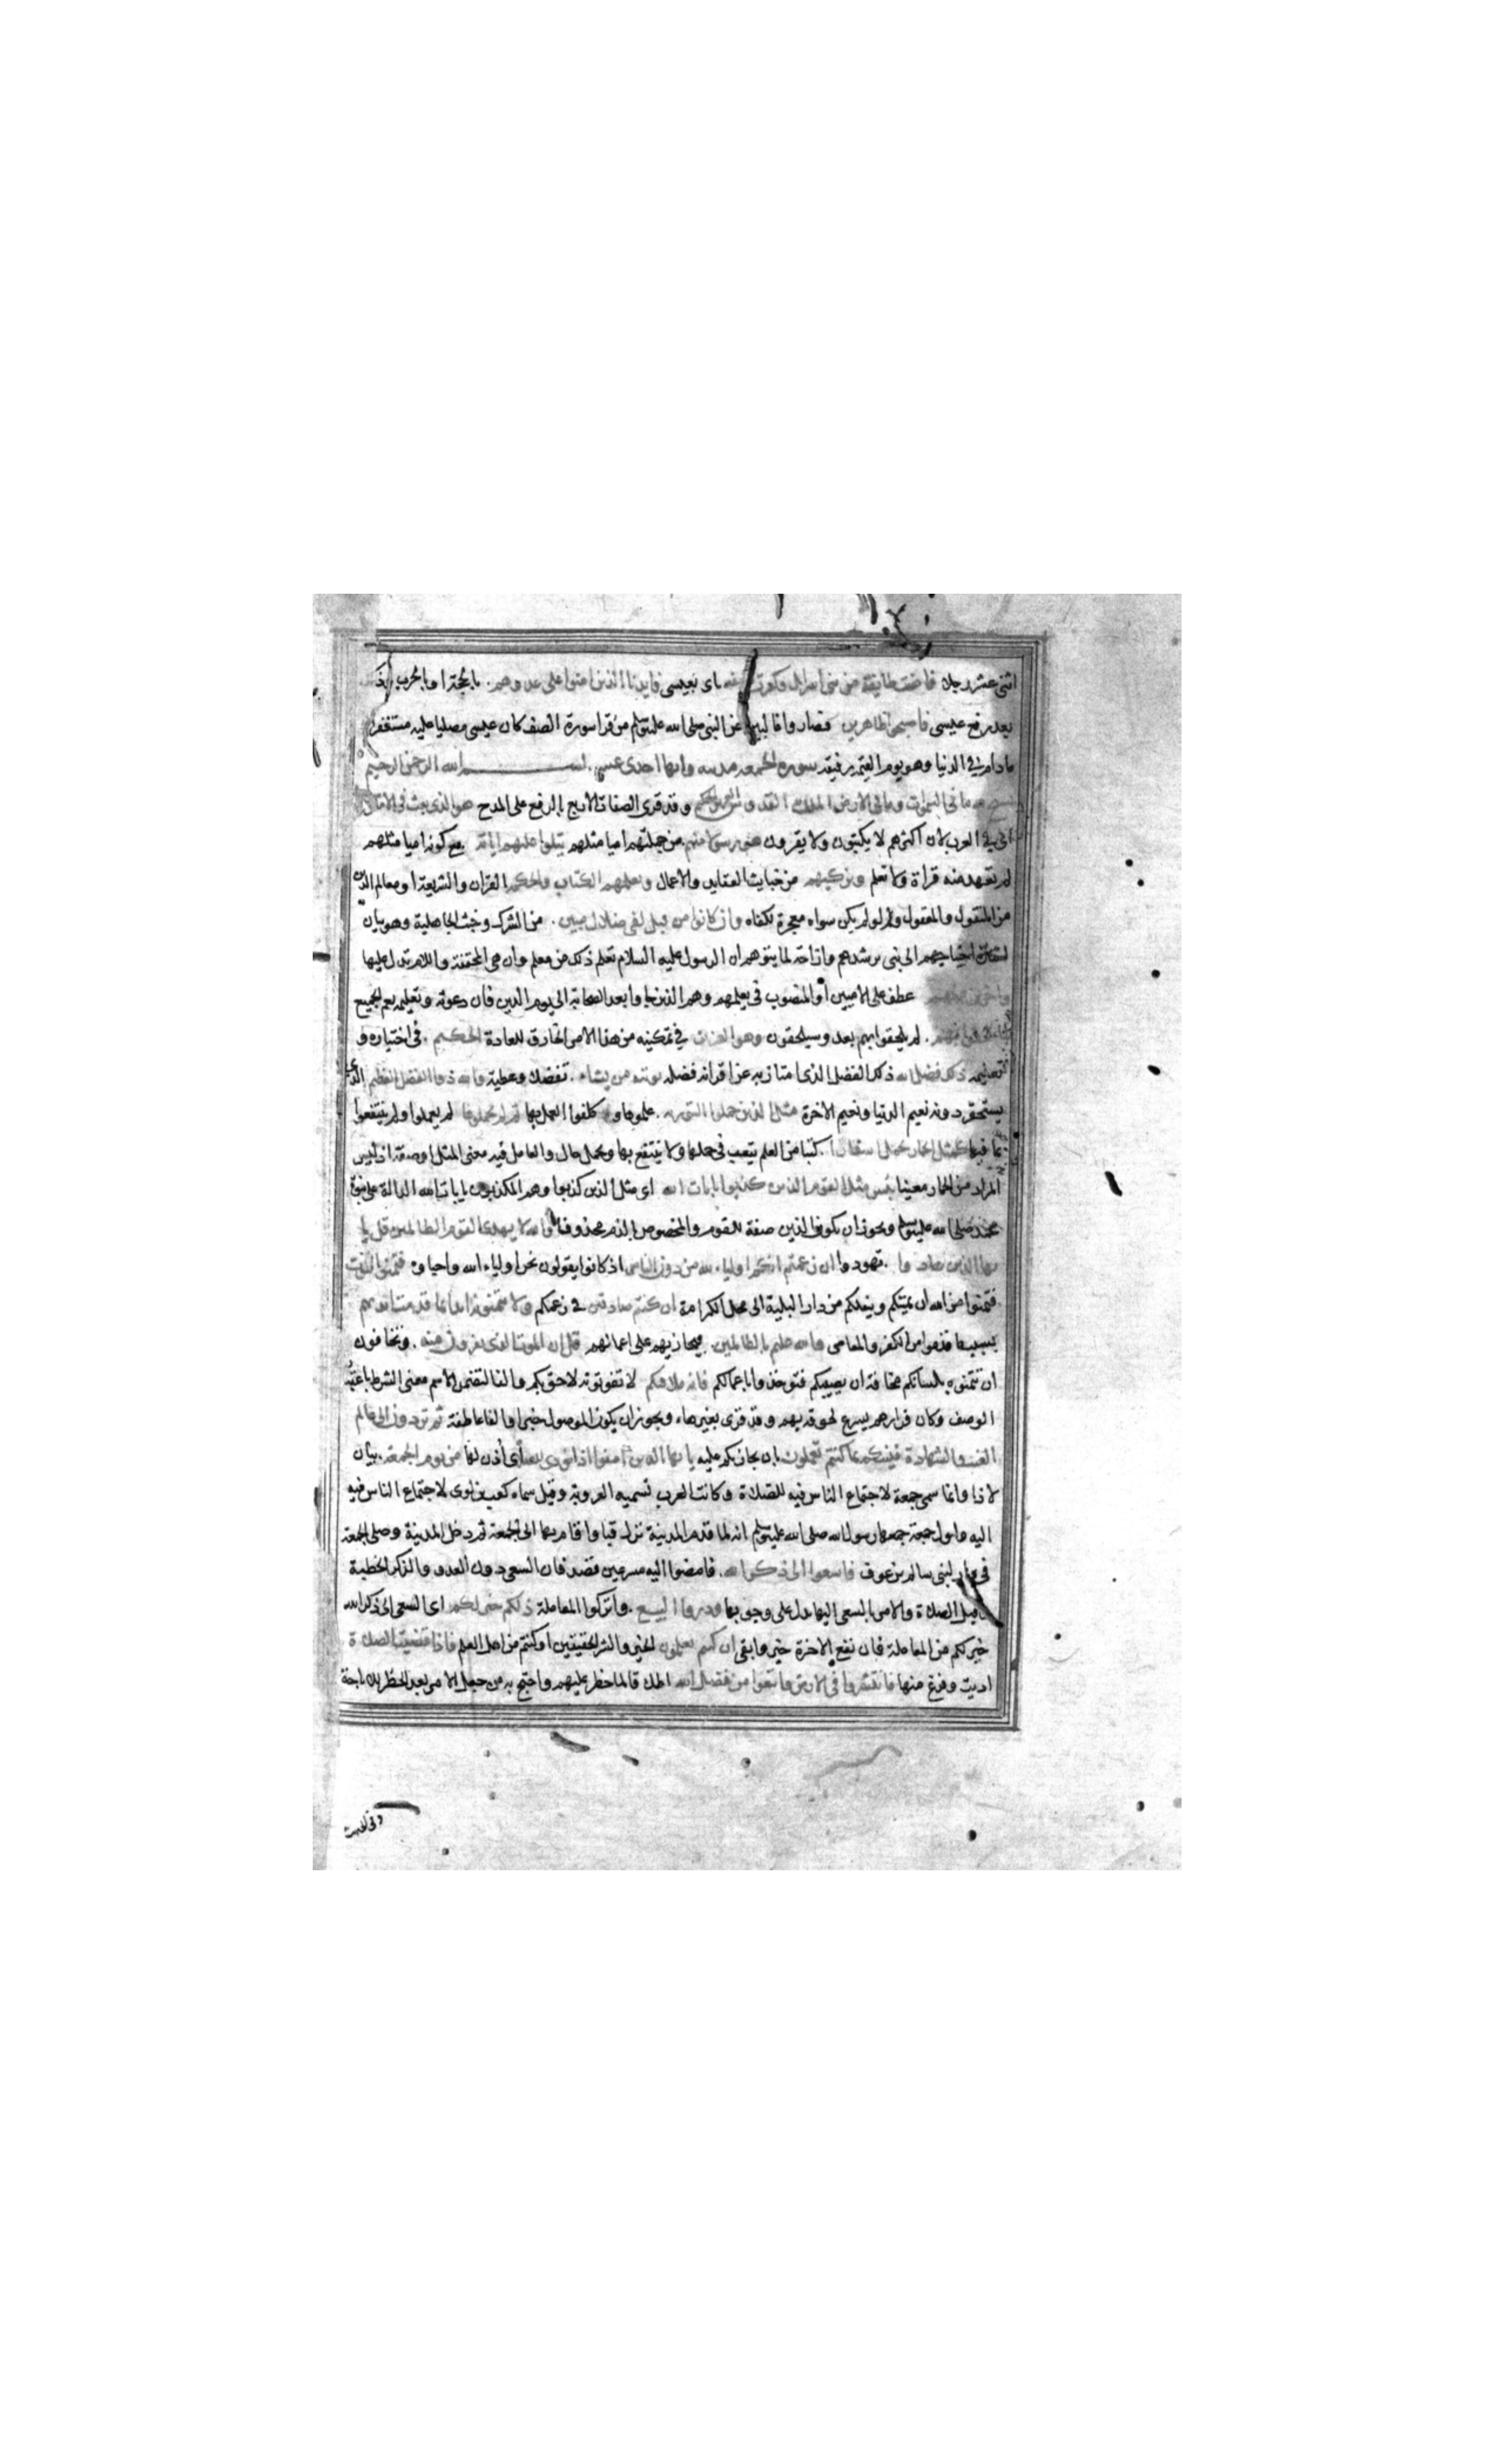 اثنى عشر رجلا فامنت طايفة من بنى اسرايل وكفرت طايفة اى بعيسى فايدنا الذين امنوا على عدوهم بالحجة او بالحرب وذلك
بعد رفع عيسى فاصبحوا ظاهرين فصاروا غالبين عن النبى صلى الله عليه وسلم من قرا سورة الصف كان عيسى مصليا عليه مستغفرا
ما دام فى الدنيا وهو يوم القيمة رفيقه سورة الجمعة مدنية وايها احدى عشر بسم الله الرحمن الرحيم
يسبح لله ما فى السموات وما فى الارض الملك القدوس العزيز الحكيم وقد قرى الصفات الاربع بالرفع على المدح هو الذى بعث فى الاميين
اى فى العرب لان اكثرهم لا يكتبون ولا يقرون رسولا منهم من جملتهم اميا مثلهم يتلوا عليهم اياته مع كونه اميا مثلهم
لم تعهد منه قراة ولا تعلم ويزكيهم من خبايث العقايد والاعمال ويعلمهم الكتاب والحكمة القران والشريعة او معالم الدين
من المنقول والمعقول ولو لم يكن سواه معجزة لكفاه وان كانوا من قبل لفى ضلال مبين من الشرك وخبث الجاهلية وهو بيان
لشدة احتياجهم الى نبى يرشدهم وازاحة لما يتوهم ان الرسول عليه السلام تعلم ذلك من معلم وان هى المخففة واللام تدل عليها
واخرين منهم عطف على الاميين او المنصوب فى يعلمهم وهم الذين جاوا بعد الصحابة الى يوم الدين فان دعوته وتعليمه يعم الجميع
لما يلحقوا بهم لم يلحقوا بهم بعد وسيلحقون وهو العزيز فى تمكينه من هذا الامر الخارق للعادة الحكيم فى اختياره و
تعليمه ذلك فضل الله ذلك الفضل الذى امتاز به عن اقرانه فضله يوتيه من يشاء تفضلا وعطية والله ذو الفضل العظيم الذى
يستحقر دونه نعيم الدنيا ونعيم الاخرة مثل الذين حملوا التورية علموها وكلفوا العمل بها ثم لم يحملوها لم يعملوا ولم ينتفعوا
بما فيها كمثل الحمار يحمل اسفارا كتبا من العلم يتعب فى حملها ولا ينتفع بها ويحمل حال والعامل فيه معنى المثل او صفة اذ ليس
المراد من الحمار معينا بئس مثل القوم الذين كذبوا بايات الله اى مثل الذين كذبوا وهم المكذبون بايات الله الدالة على نبوة
محمد صلى الله عليه وسلم ويجوز ان يكون الذين صفة للقوم والمخصوص بالذم محذوفا والله لا يهدى القوم الظالمين قل يا
ايها الذين هادوا تهودوا ان زعمتم انكم اولياء لله من دون الناس اذ كانوا يقولون نحن اولياء الله واحباوه فتمنوا الموت
فتمنوا من الله ان يميتكم وينقلكم من دار البلية الى محل الكرامة ان كنتم صادقين فى زعمكم ولا يتمنونه ابدا بما قدمت ايديهم
بسبب ما قدموا من الكفر والمعاصى والله عليم بالظالمين فيجازيهم على اعمالهم قل ان الموت الذى تفرون منه وتخافون
ان تتمنوه بلسانكم مخافة ان يصيبكم فتوخذوا باعمالكم فانه ملاقيكم لا تفوتونه لاحق بكم والفا لتضمن الاسم معنى الشرط باعتبار
الوصف وكان فرارهم يسرع لحوقه بهم وقد قرى بغير هاء ويجوز ان يكون الموصول خبرا والفا عاطفة ثم تردون الى عالم
الغيب والشهادة فينبئكم بما كنتم تعملون بان يجازيكم عليه يا ايها الذين امنوا اذا نودى للصلاة اى اذن لها من يوم الجمعة بيان
لاذا وانما سمى جمعة لاجتماع الناس فيه للصلاة وكانت العرب تسميه العروبة وقيل سماه كعب بن لوى لاجتماع الناس فيه
اليه واول جمعة جمعها رسول الله صلى الله عليه وسلم انه لما قدم المدينة نزل قبا واقام بها الى الجمعة ثم دخل المدينة وصلى الجمعة
فى دار لبنى سالم بن عوف فاسعوا الى ذكر الله فامضوا اليه مسرعين قصدا فان السعى دون العدو والذكر الخطبة
وقيل الصلاة والامر بالسعى اليها يدل على وجوبها وذروا البيع واتركوا المعاملة ذلكم خير لكم اى السعى الى ذكر الله
خير لكم من المعاملة فان نفع الاخرة خير وابقى ان كنتم تعلمون الخير والشر الحقيقيين او كنتم من اهل العلم فاذا قضيت الصلاة
اديت وفرغ منها فانتشروا فى الارض وابتغوا من فضل الله اطلاق لما حظر عليهم واحتج به من جعل الامر بعد الحظر للاباحة
وفى الحديث